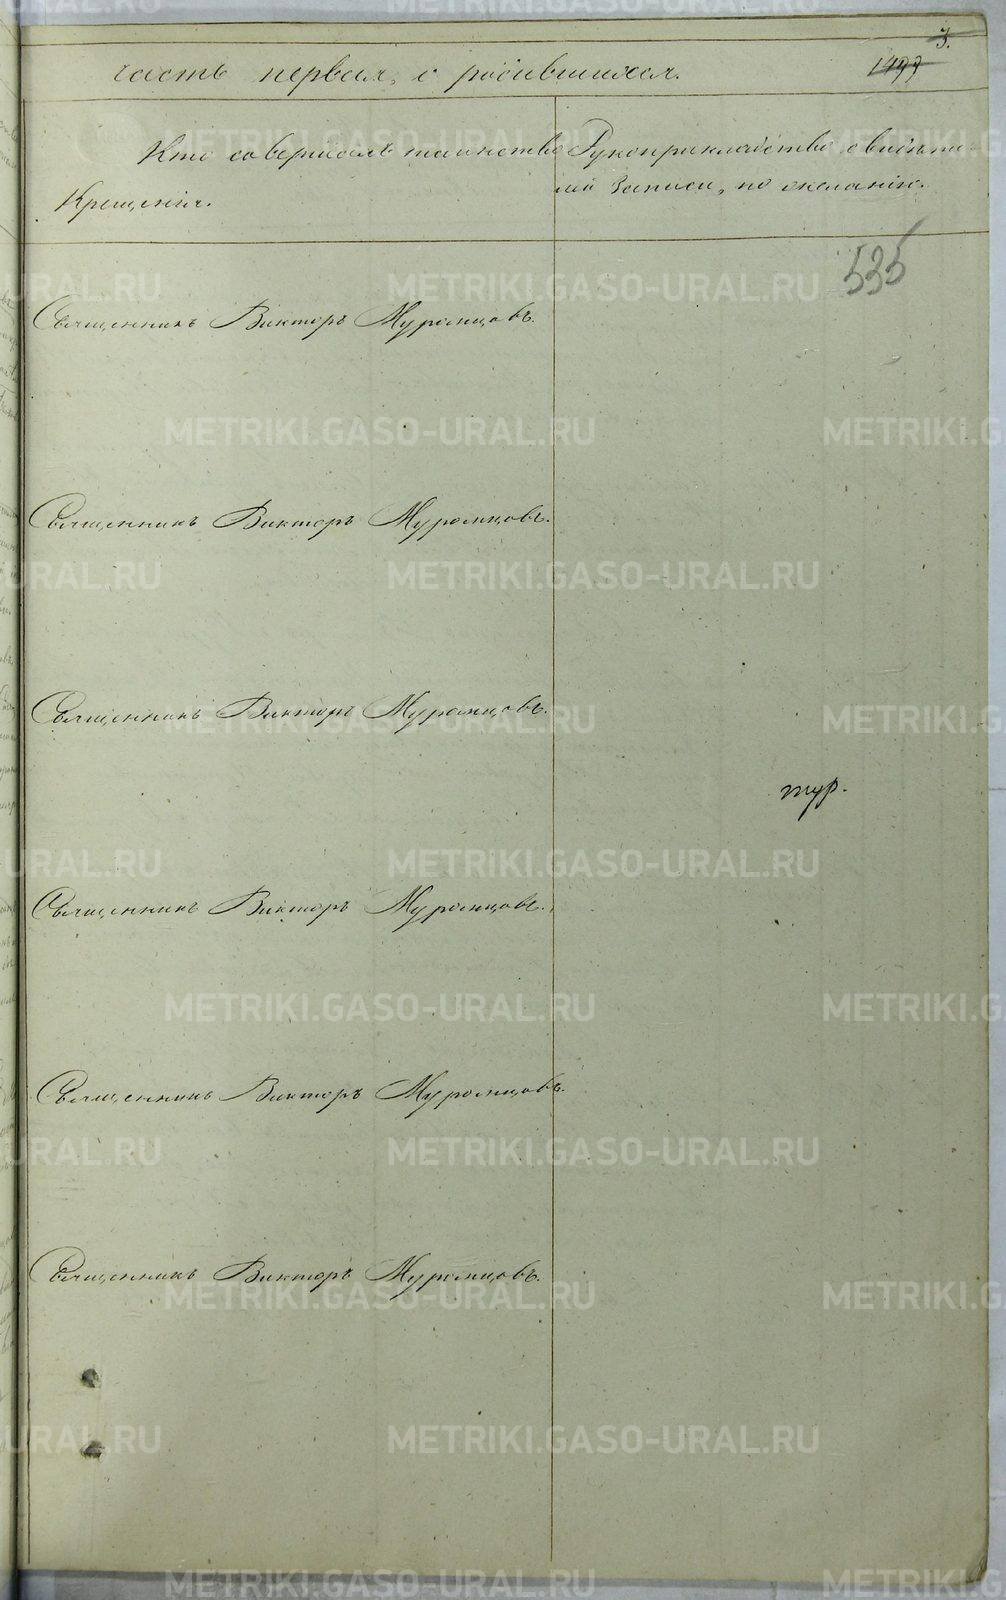 3.
1499
часть первая, о родившихся.
Кто совершалъ таинство
Крещенія.
Рукоприкладство свидѣте-
лей записи, по желанію.
535
Священникъ Викторъ Муромцовъ.
Священникъ Викторъ Муромцовъ.
Священникъ Викторъ Муромцовъ.
тур.
Священникъ Викторъ Муромцовъ.
Священникъ Викторъ Муромцовъ.
Священникъ Викторъ Муромцовъ.
METRIKI.GASO-URAL.RU